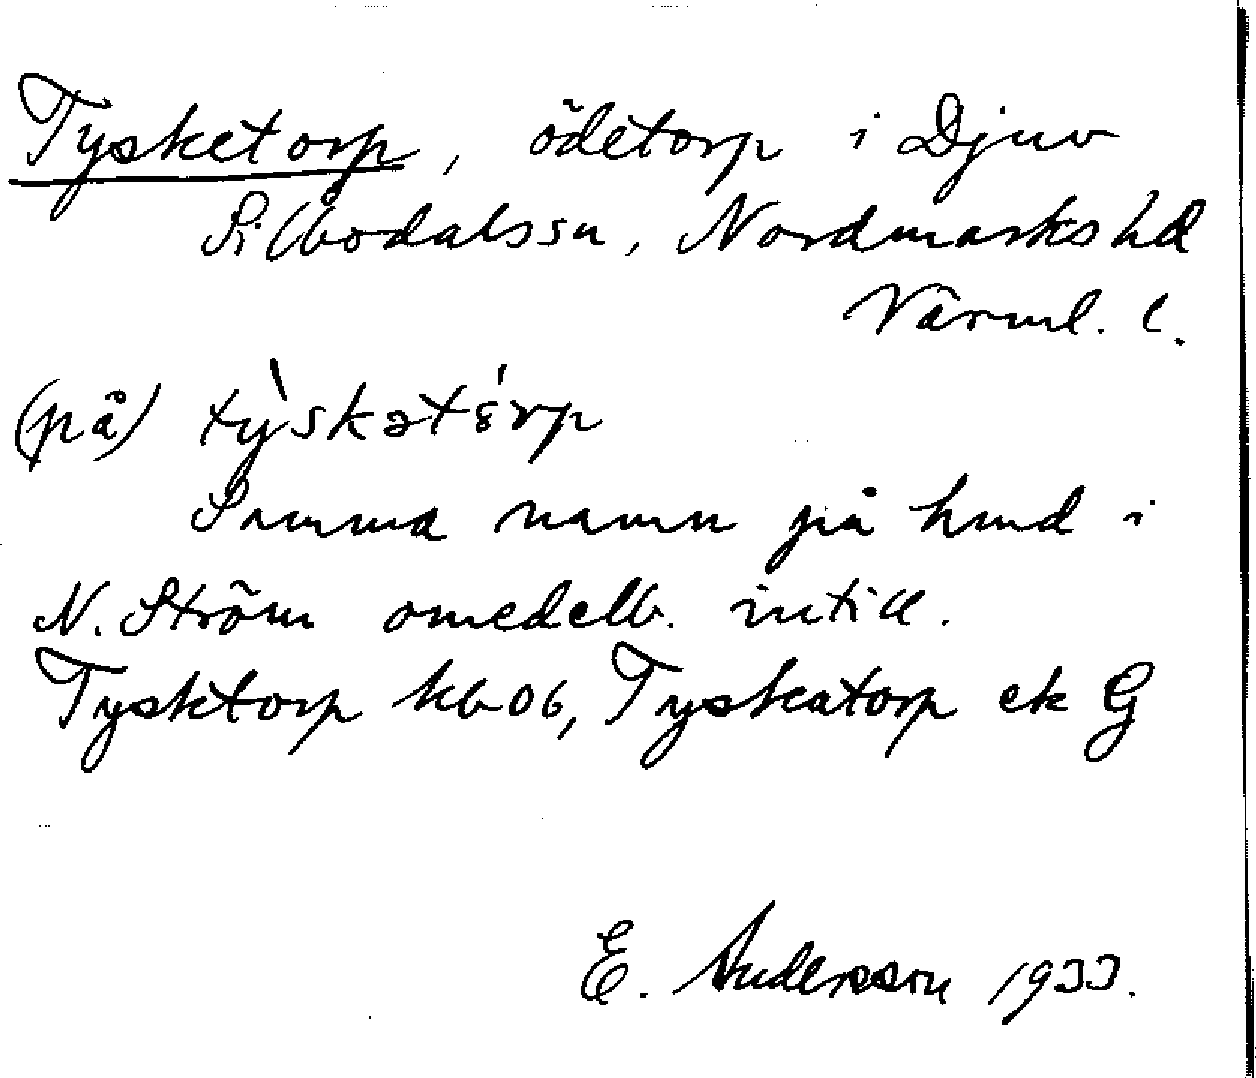 Tysketorp, ödetorp i Djuv
Silbodalssn, Nordmarks hd
Värml. l.
(på) tỳskətórp
Samma namn på hmd i
N. Ström omedelb. intill.
Tysktorp kb 06, Tyskatorp ek G
E. Andersson 1933.